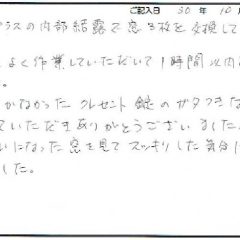 ご記入日 30年 10月
ラスの内部結露で窓3枚を交換して
よく作業していただいて1時間以内
。
かなかった クレセント錠のガタつきな
ていただきありがとうございました。
いになった窓を見てスッキリした気分に
した。